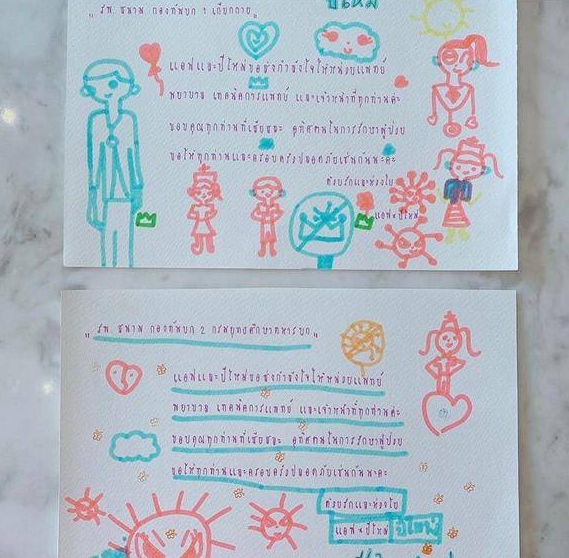 ปีใหม่
"รพ. สนาม กองทัพบก 1 เกียกกาย"
แอฟและปีใหม่ขอส่งกำลังใจให้หน่วยแพทย์
พยาบาล เทคนิคการแพทย์ และเจ้าหน้าที่ทุกท่านค่ะ
ขอบคุณทุกท่านที่เสียสละ อุทิศตนในการรักษาผู้ป่วย
ขอให้ทุกท่านและครอบครัวปลอดภัยเช่นกันนะคะ
ด้วยรักและห่วงใย
แอฟ×ปีใหม่
"รพ. สนาม กองทัพบก 2 กรมยุทธศึกษาทหารบก"
แอฟและปีใหม่ขอส่งกำลังใจให้หน่วยแพทย์
พยาบาล เทคนิคการแพทย์ และเจ้าหน้าที่ทุกท่านค่ะ
ขอบคุณทุกท่านที่เสียสละ อุทิศตนในการรักษาผู้ป่วย
ขอให้ทุกท่านและครอบครัวปลอดภัยเช่นกันนะคะ
ด้วยรักและห่วงใย
แอฟ×ปีใหม่ ปีใหม่